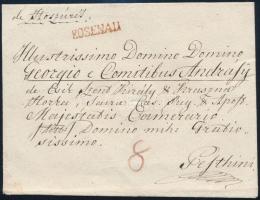 de Rospúris
ROSENAU
Illustrissimo Domino Domino
Georgio e Comitibus Andrásÿ
de Csik Szent Király & Kraszna
Horka, Sacræ Cæs. Reg. & Apost.
Majestatis Camerario
Domino mihi Gratio-
sissimo.
8
Pesthini